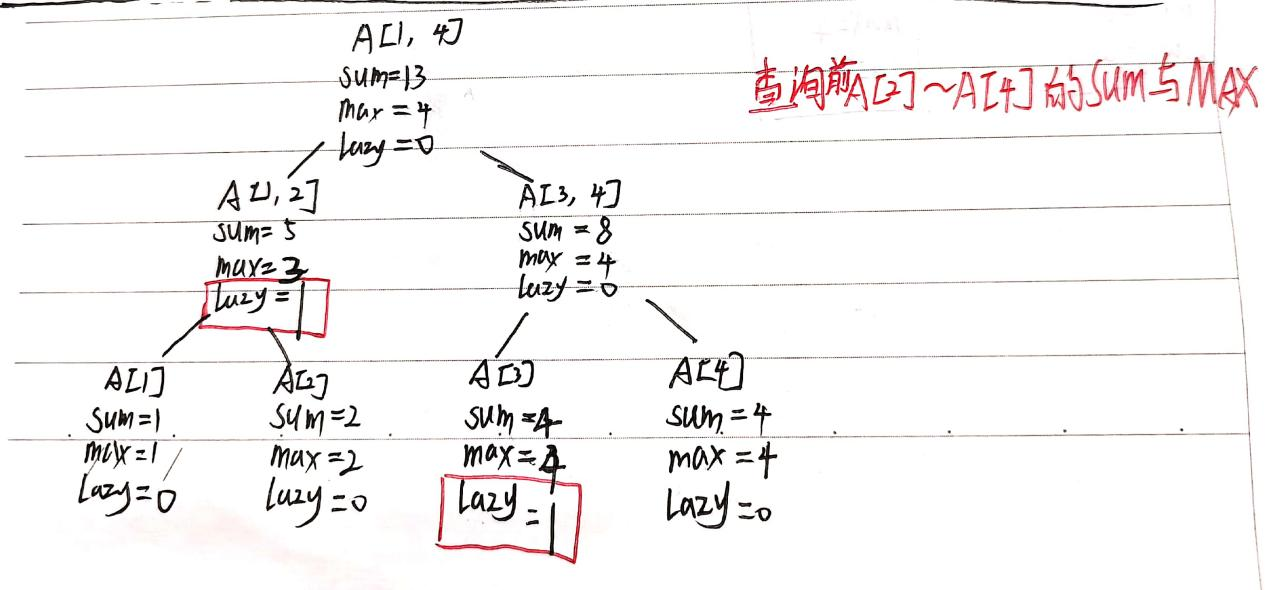 A[1, 4]
sum=13
max = 4
lazy = 0
查询前A[2]～A[4]的SUM与MAX
A[1, 2]
sum= 5
max= 3
lazy = 1
A[3, 4]
sum = 8
max = 4
lazy = 0
A[1]
sum=1
max=1
lazy=0
A[2]
sum=2
max=2
lazy=0
A[3]
sum=4
max=4
lazy=1
A[4]
sum=4
max=4
lazy=0